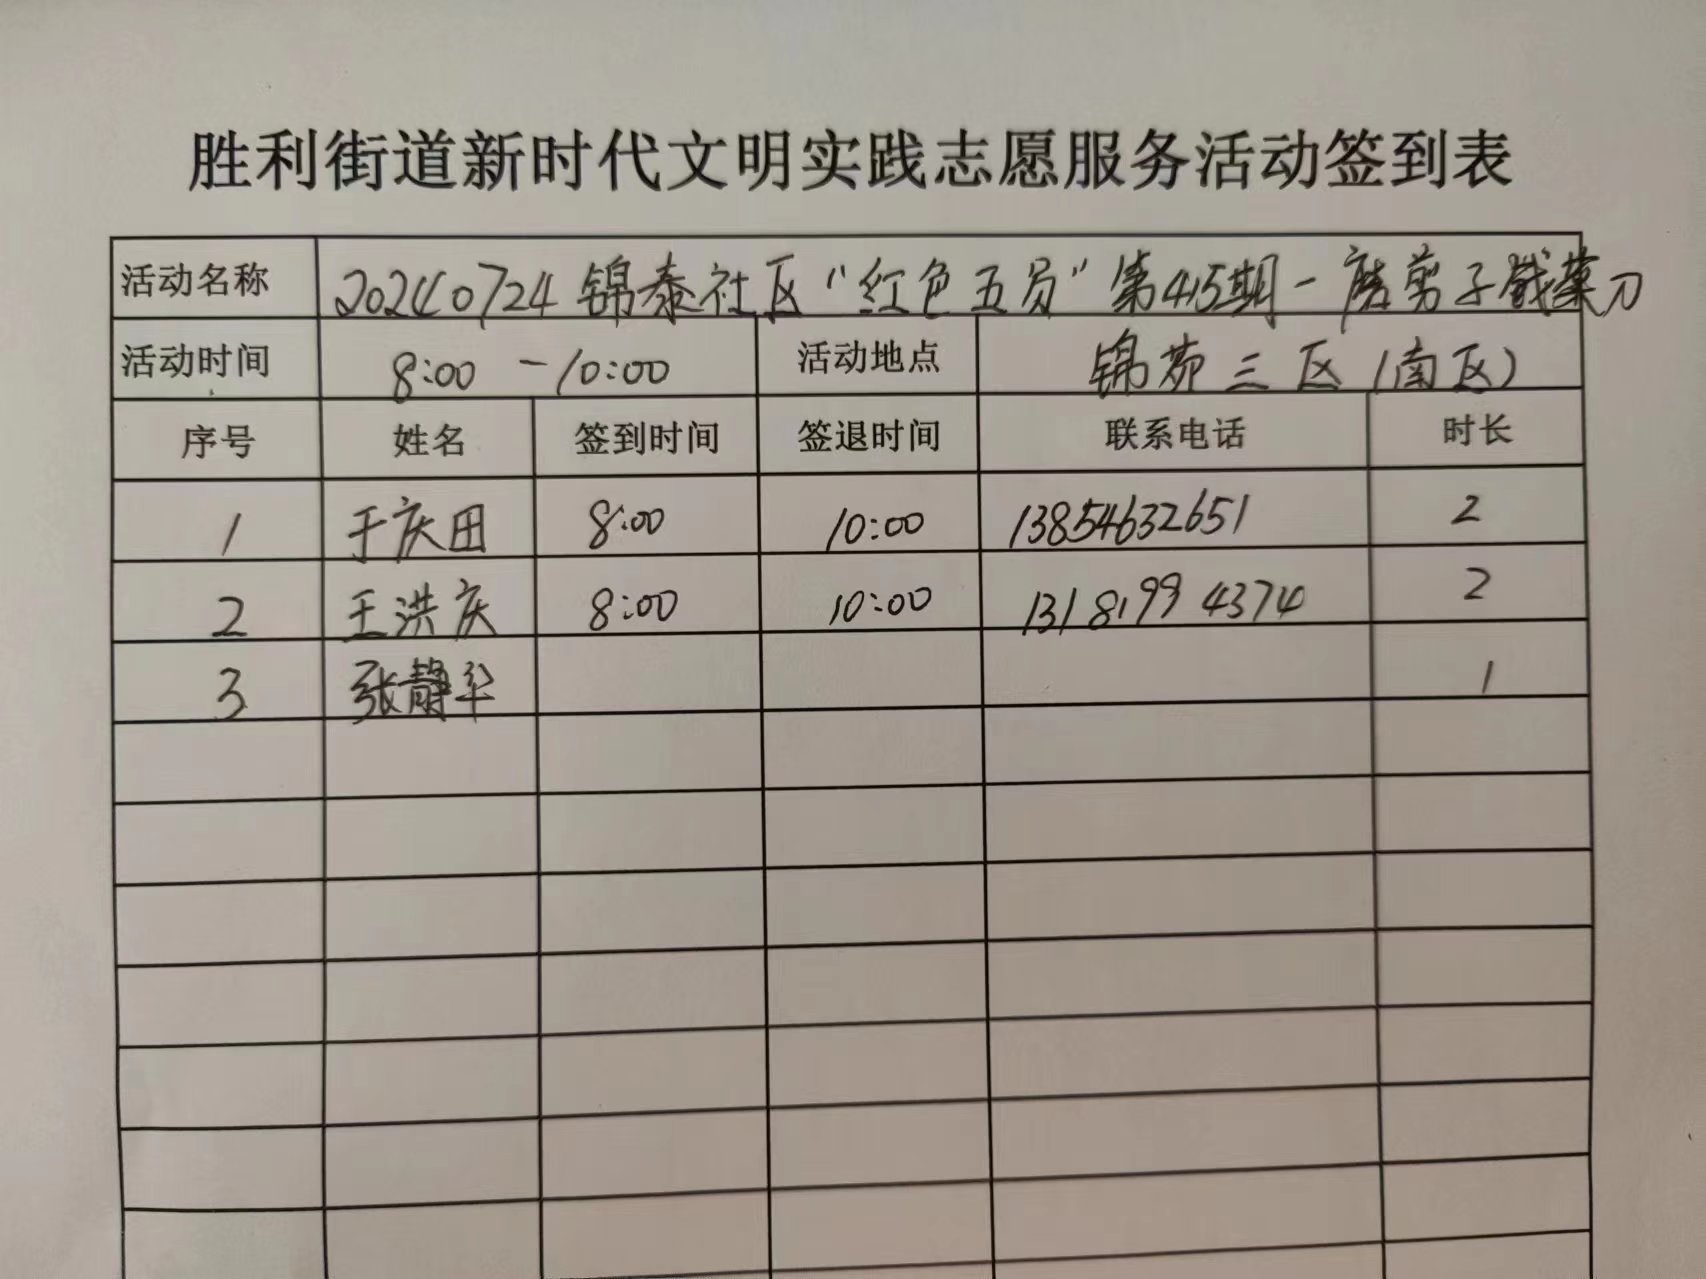 胜利街道新时代文明实践志愿服务活动签到表
活动名称 20240724锦泰社区“红色五员”第415期-磨剪子戗菜刀
活动时间 8:00-10:00 活动地点 锦苑三区(南区)
序号 姓名 签到时间 签退时间 联系电话 时长
1 于庆田 8:00 10:00 13854632651 2
2 王洪庆 8:00 10:00 13181994374 2
3 张静华 1